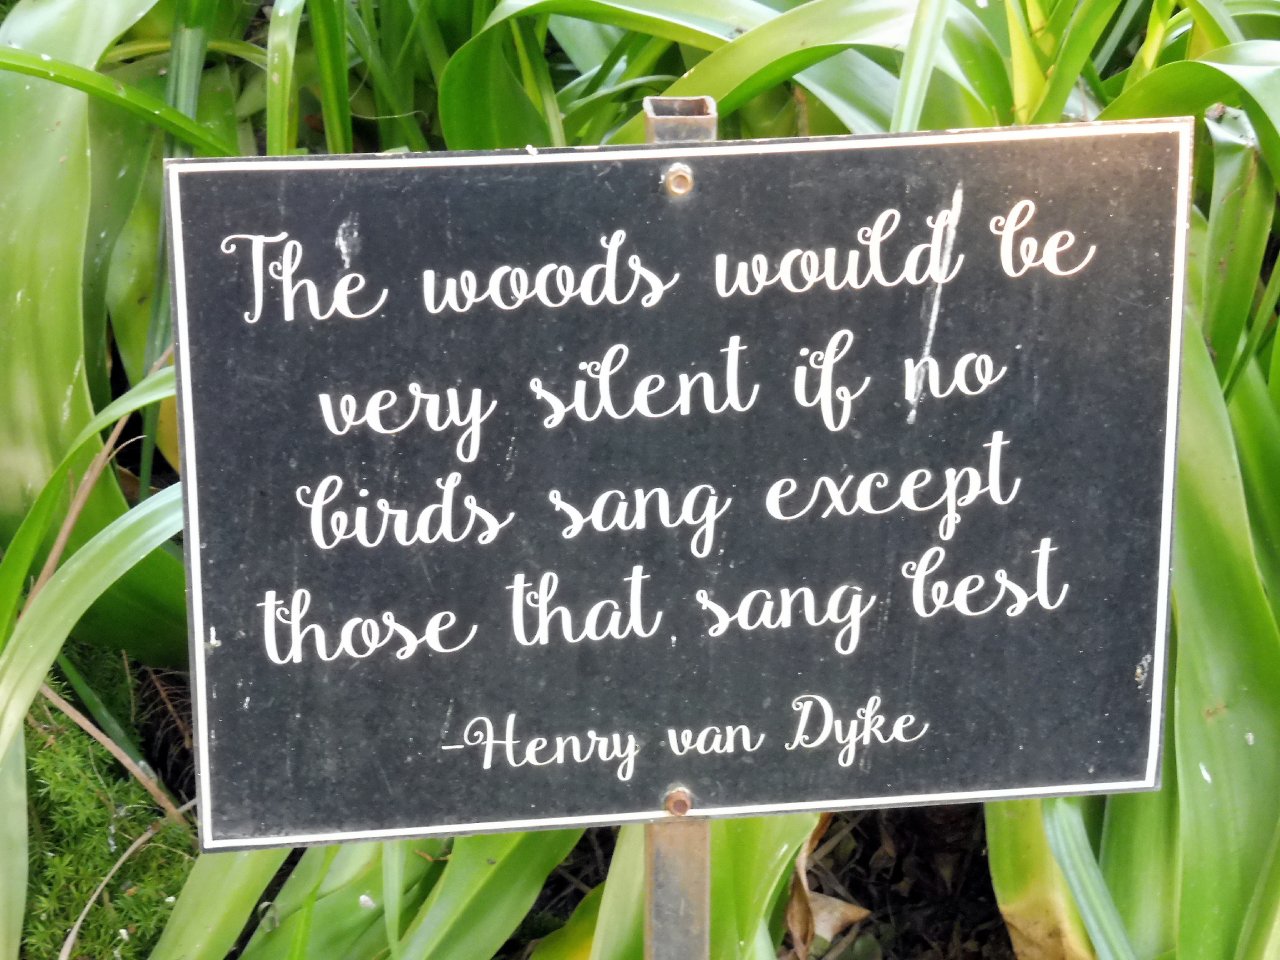 The woods would be
very silent if no
birds sang except
those that sang best
-Henry van Dyke